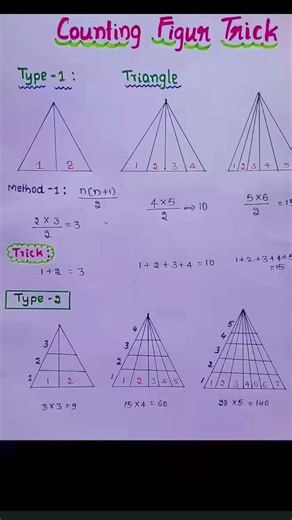 Counting Figur Trick
Type-1: Triangle
1 2
1 2 3 4
1 2 3 4 5
Method-1: n(n+1)/2
2×3/2 = 3
4×5/2 ⇒ 10
5×6/2 = 15
Trick:
1+2 = 3
1+2+3+4 = 10
1+2+3+4+5
=15
Type-2
3
2
1 1 2
4
3
2
1 1 2 3 4 5
5
4
3
2
1 1 2 3 4 5 6 7
3×3=9
15×4=60
28×5=140